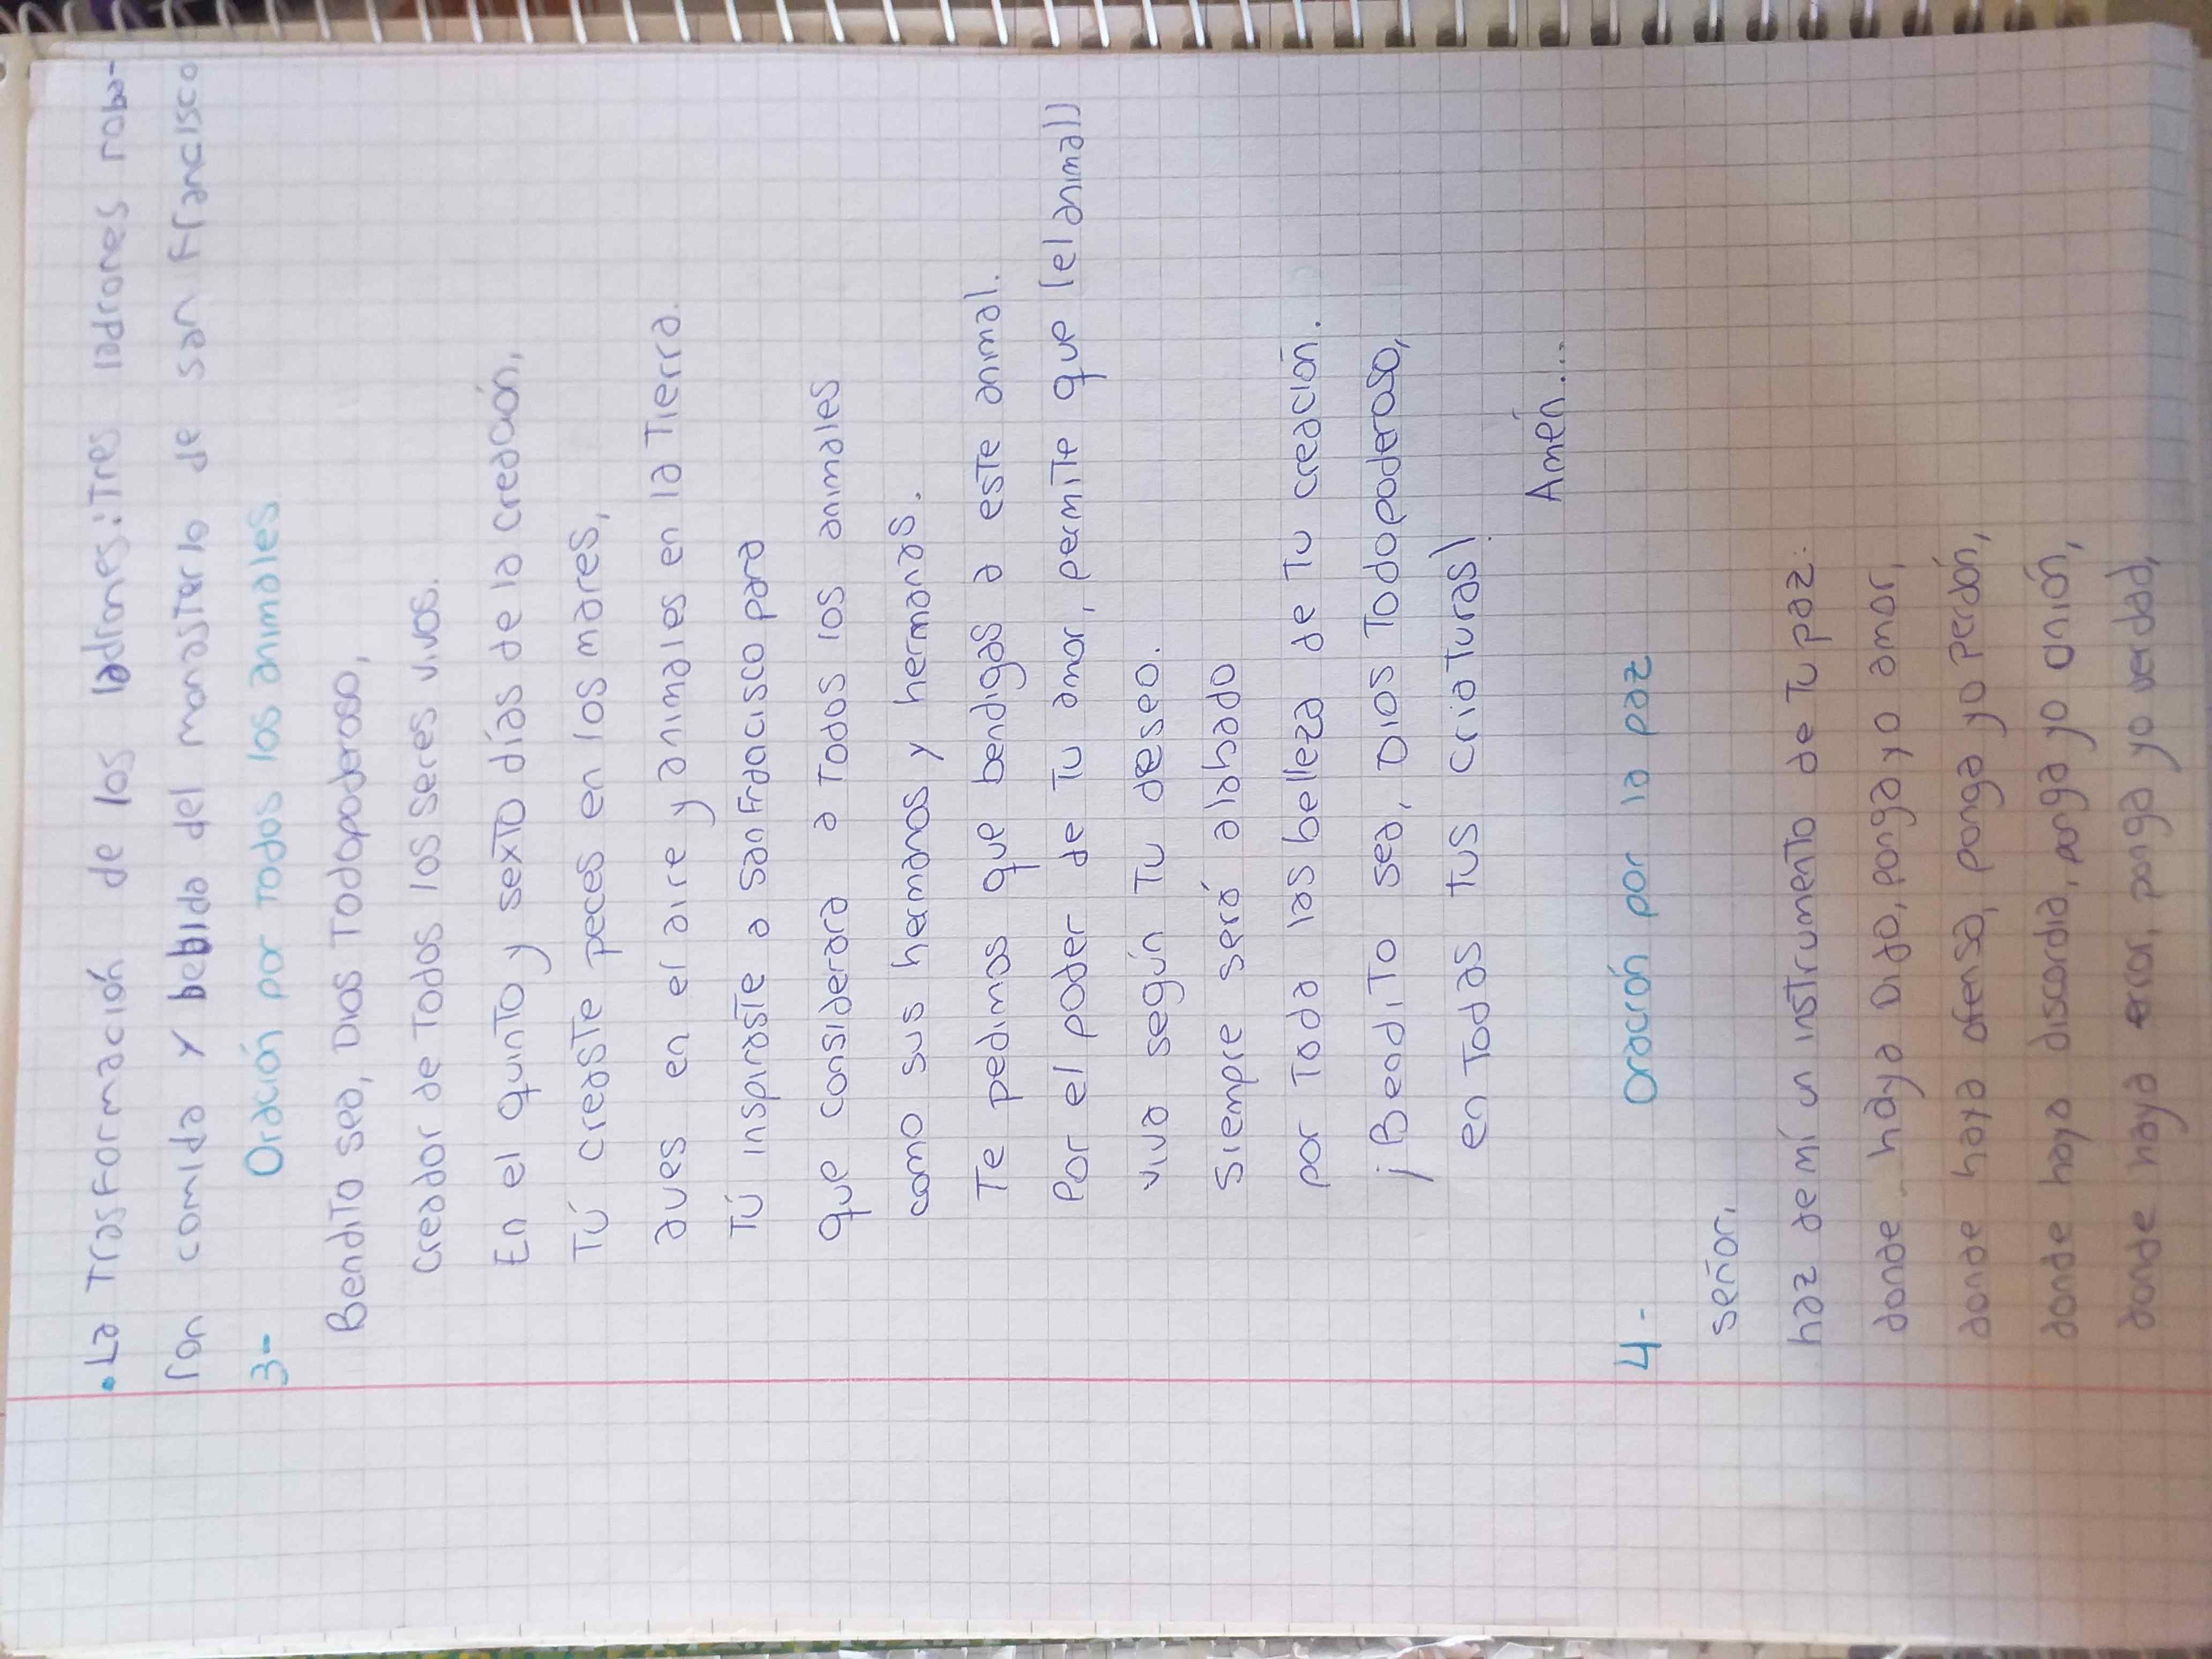 • La Trasformación de los ladrones: Tres ladrones roba-
ron comida y bebida del monasterio de san francisco
3- Oración por todos los animales
Bendito sea, Dios Todopoderoso,
creador de Todos los seres vivos.
En el quinto y sexto días de la creación,
Tú creaste peces en los mares,
aves en el aire y animales en la Tierra.
Tú inspiraste a san Fracisco para
que considerara a Todos los animales
como sus hermanos y hermanas.
Te pedimos que bendigas a este animal.
Por el poder de Tu amor, permite que (el animal)
viva según Tu deseo.
Siempre será alabado
por Toda las belleza de Tu creación.
¡Bendito sea, Dios Todopoderoso,
en Todas tus criaturas!
Amén....
4- Oración por la paz
señor,
haz de mí un instrumento de Tu paz:
donde haya Odio, ponga yo amor,
donde haya ofensa, ponga yo perdón,
donde haya discordia, ponga yo unión,
donde haya error, ponga yo verdad,